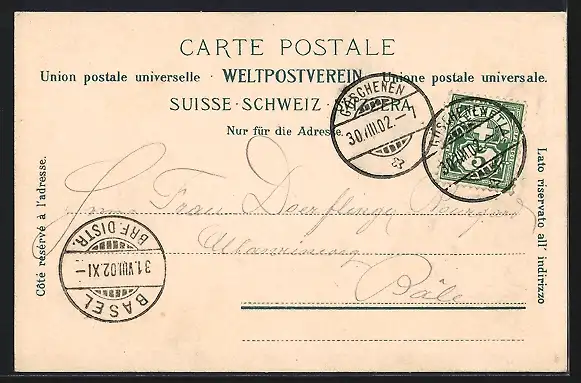 CARTE POSTALE
Union postale universelle · WELTPOSTVEREIN · Unione postale universale.
SUISSE · SCHWEIZ · SVIZZERA
Nur für die Adresse.
Côté reservé à l'adresse.
Lato riservato all' indirizzo
GÖSCHENEN
30.VIII.02.-7
GÖSCHENEN
Frau Doerflinger
Bâle
BASEL
31.VIII.02.XI-
BRF. DISTR.